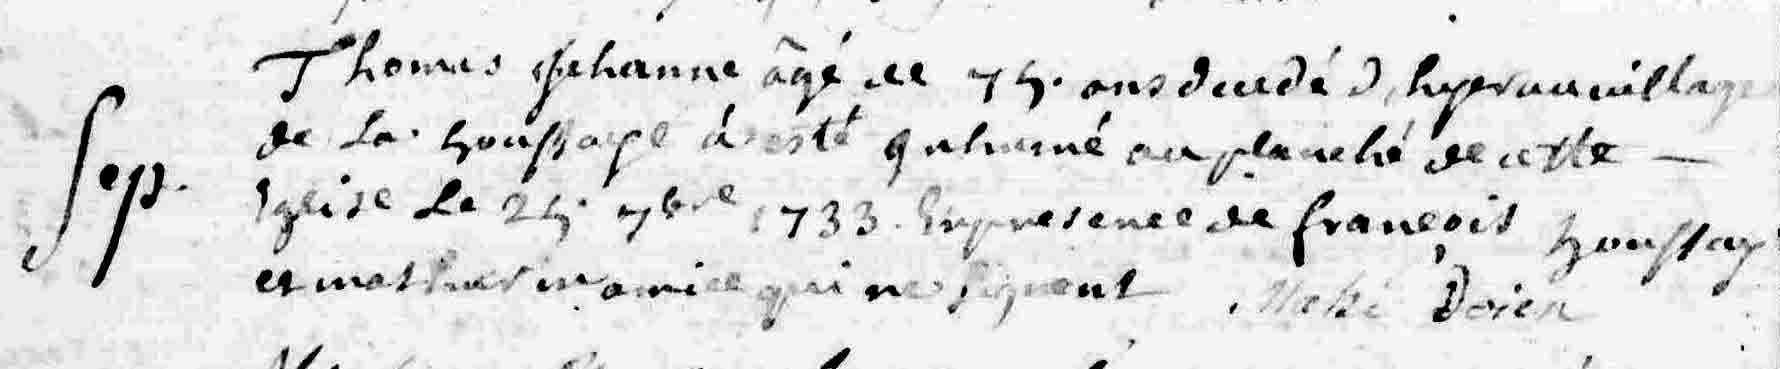 Thomas Jehanne âgé de 75. ans decedé d'hyer au village
Sep. de La houssaye à esté inhumé au planché de cette
Eglise Le 25. 7bre 1733. En presence de françois houssay
et mathur amice qui ne signent Mahé Doien